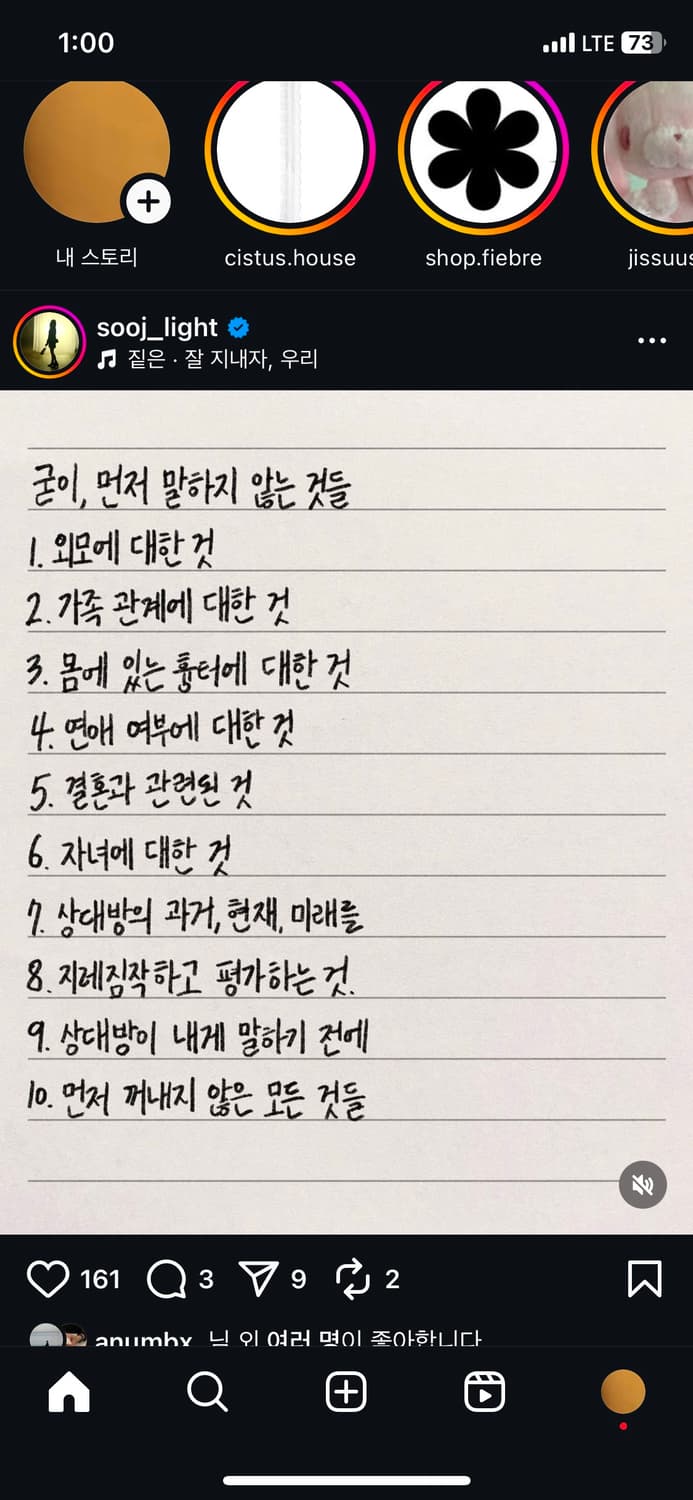 1:00
LTE 73
내 스토리
cistus.house
shop.fiebre
jissuus
sooj_light
짙은 · 잘 지내자, 우리
굳이, 먼저 말하지 않는 것들
1. 외모에 대한 것
2. 가족 관계에 대한 것
3. 몸에 있는 흉터에 대한 것
4. 연애 여부에 대한 것
5. 결혼과 관련된 것
6. 자녀에 대한 것
7. 상대방의 과거, 현재, 미래를
8. 지레짐작하고 평가하는 것.
9. 상대방이 내게 말하기 전에
10. 먼저 꺼내지 않은 모든 것들
161 3 9 2
anumbx 님 외 여러 명이 좋아합니다